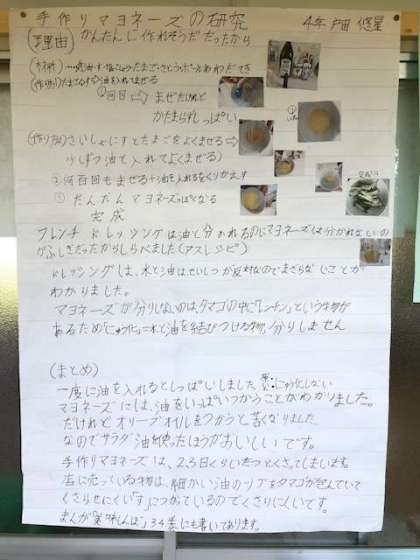 手作りマヨネーズの研究 4年 戸田 悠星
(理由) かんたんに作れそうだったから
(作り方) たまごす油を入れまぜる
①回目⇨ まぜたけれど
かたまらずしっぱい
(作り方) さいしょにすとたまごをよくまぜる⇨
少しずつ油を入れてよくまぜる)
②何百回もまぜる+油を入れるをくりかえす
③ だんだんマヨネーズっぽくなる
完成
フレンチドレッシングは油と分かれるのにマヨネーズは分かれないの
がふしぎだったからしらべました(アスレシピ)
ドレッシングは、水と油はせいしつが反対なのでまざらないことが
わかりました。
マヨネーズが分りしないのはタマゴの中に「レシチン」という物が
あるためにゅう化=水と油を結びつける物分りしません
(まとめ)
一度に油を入れるとしっぱいしました にゅう化しない
マヨネーズには、油をいっぱいつかうことがわかりました。
だけれどオリーブオイルをつかうと苦くなりました
なのでサラダ油使ったほうがおいしいです。
手作りマヨネーズは、2.3日くらいたつとくさってしまいます。
店に売っている物は、細かい油のツブをタマゴが包んでいて
くさりにくい「す」につかっているのでくさりにくいです。
まんが「美味しんぼ」34巻にも書いてあります。